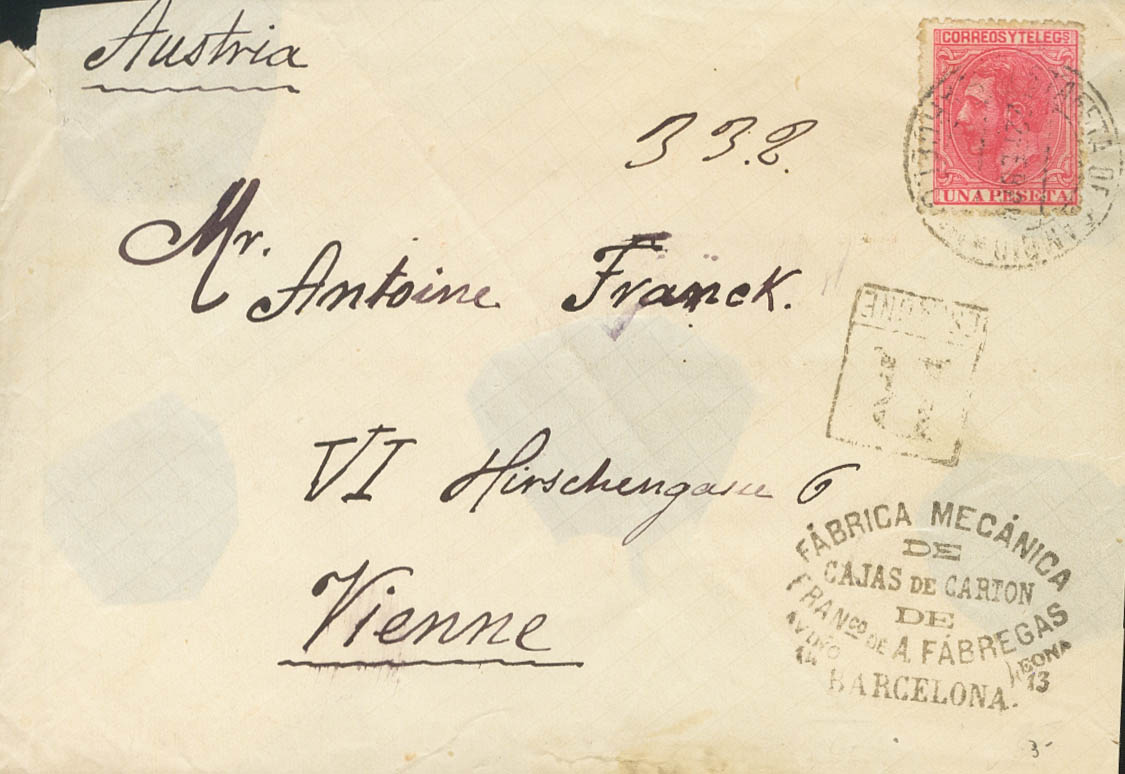 Austria
CORREOS Y TELEGS
UNA PESETA
3 3 2.
Mr.
Antoine Franck.
VI Hirschengasse 6
Vienne
FÁBRICA MECÁNICA
DE
CAJAS DE CARTON
DE
FRANco DE A. FÁBREGAS
AVIÑO 14
LEONA 13
BARCELONA.
3